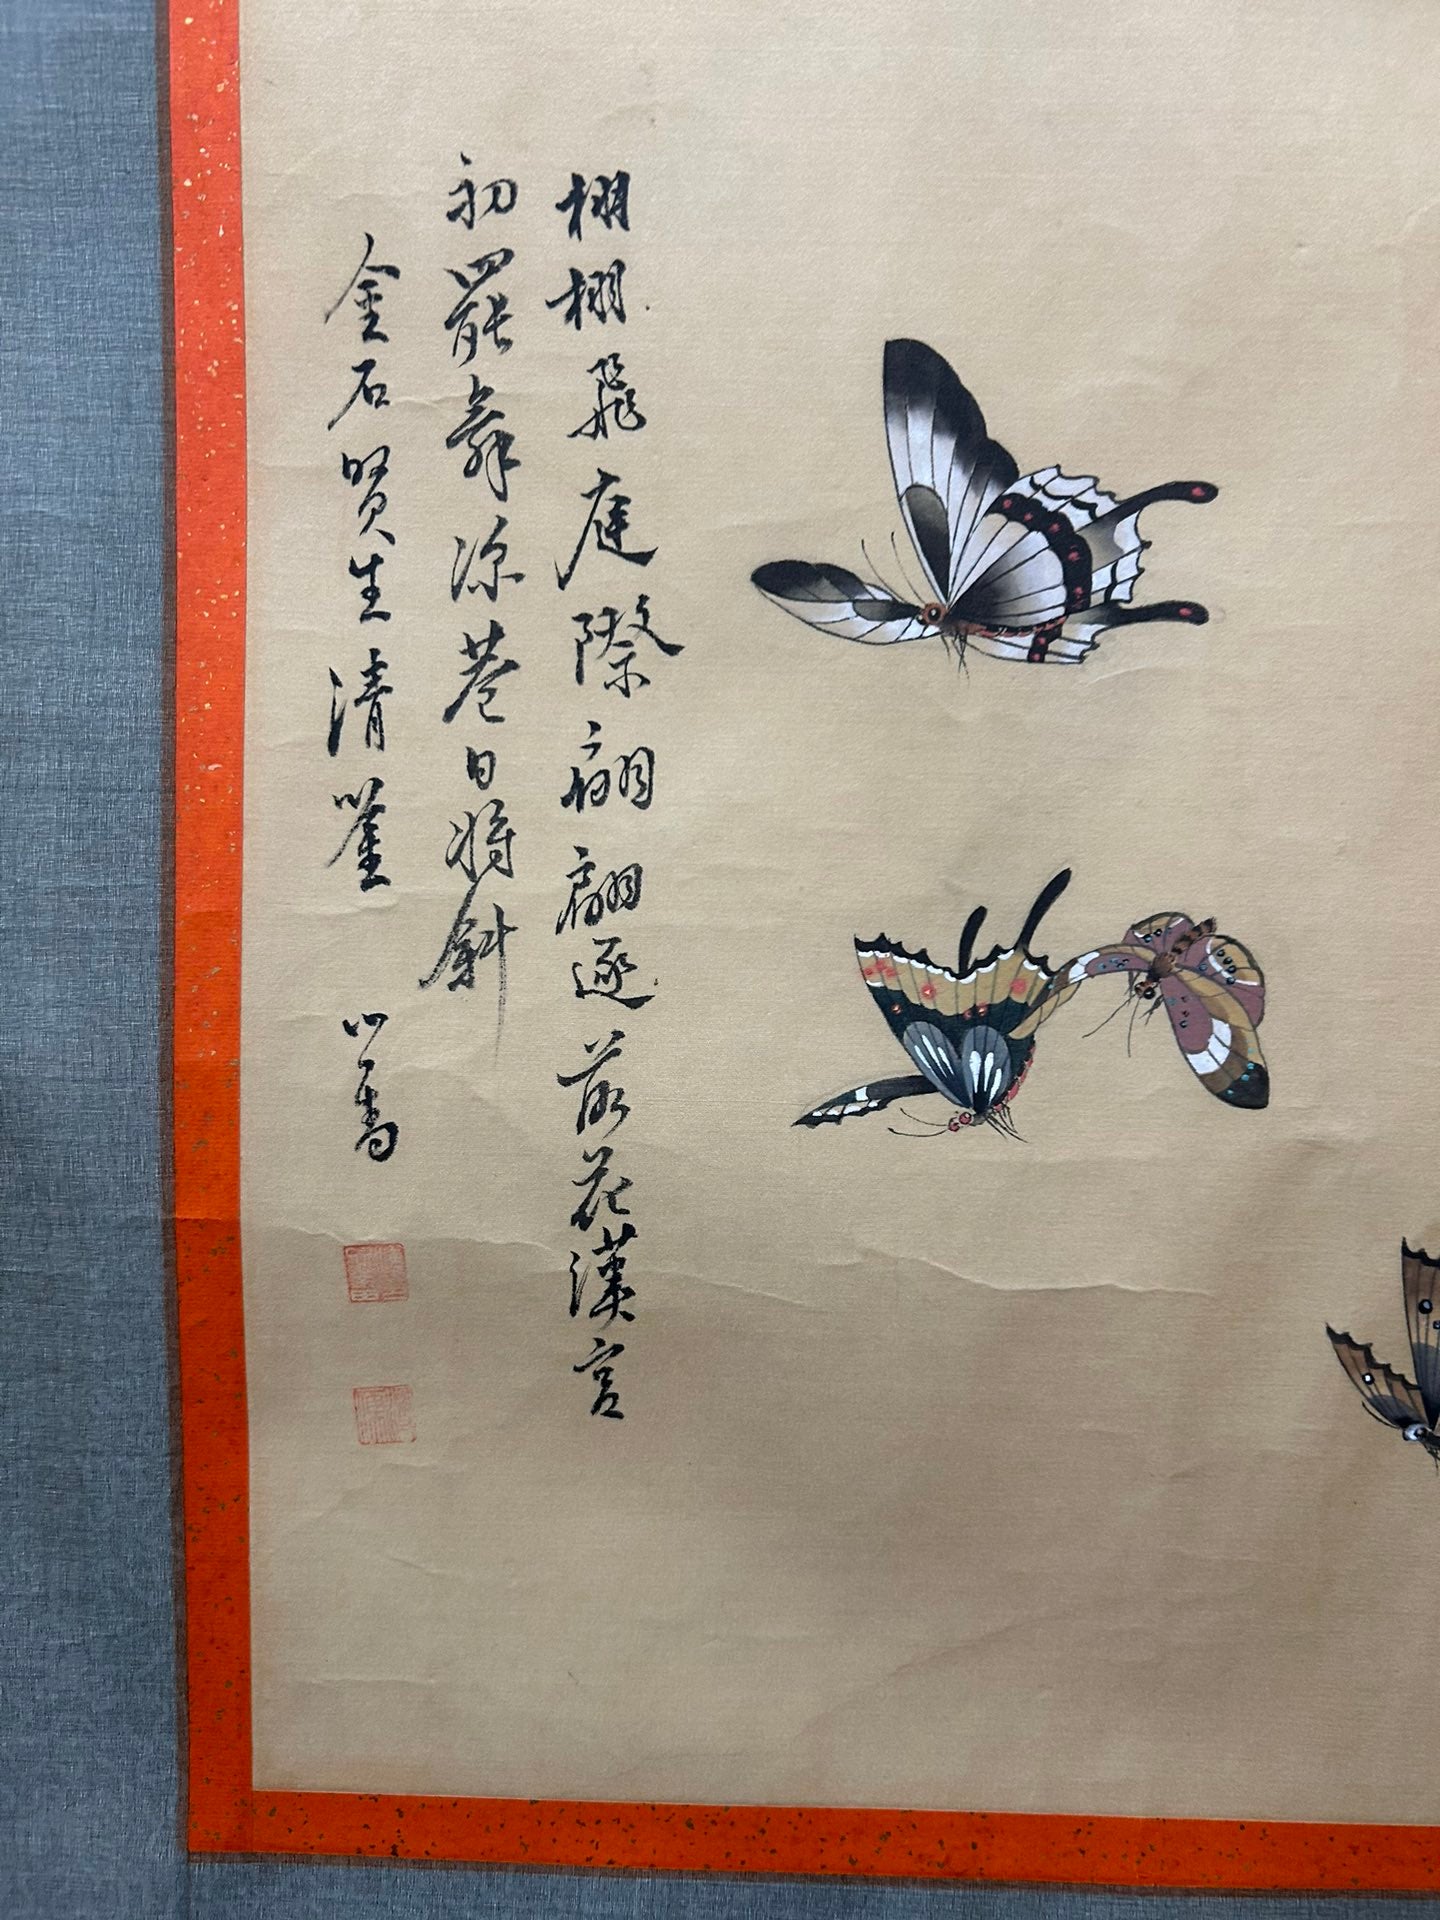 栩栩飛庭際翩翩逐落花漢宮
初罷舞涼苑日將斜
金石賢生清鑒
心畬